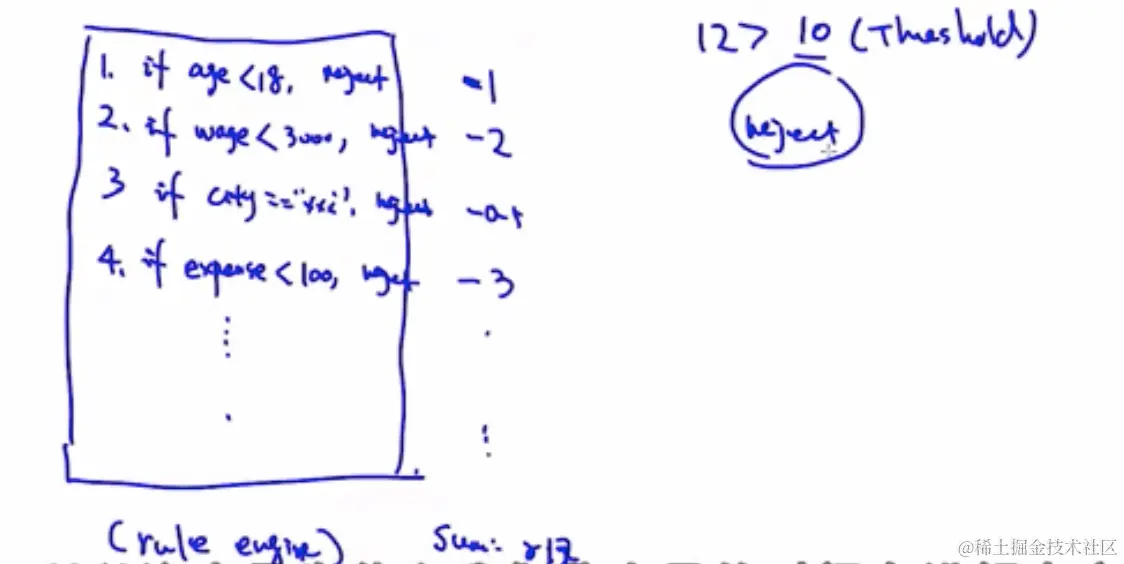 1. if age <18, reject -1
2. if wage < 3000, reject -2
3 if city == reject
4. if expense < 100, reject -3
(rule engine)
sum:
12 > 10 (Threshold)
reject
@稀土掘金技术社区